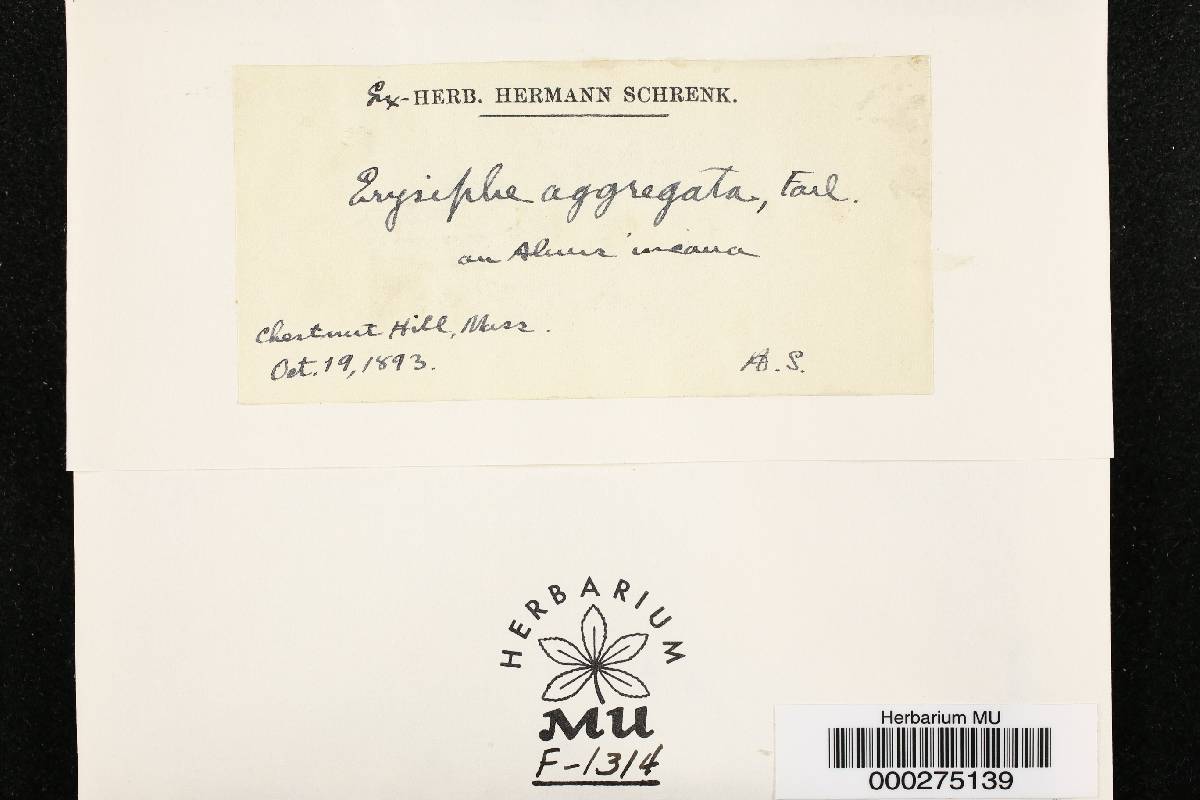 Ex-HERB. HERMANN SCHRENK.
Erysiphe aggregata, Farl.
on Alnus incana
Chestnut Hill, Mass.
Oct. 19, 1893.
H. S.
HERBARIUM
MU
F-1314
Herbarium MU
000275139